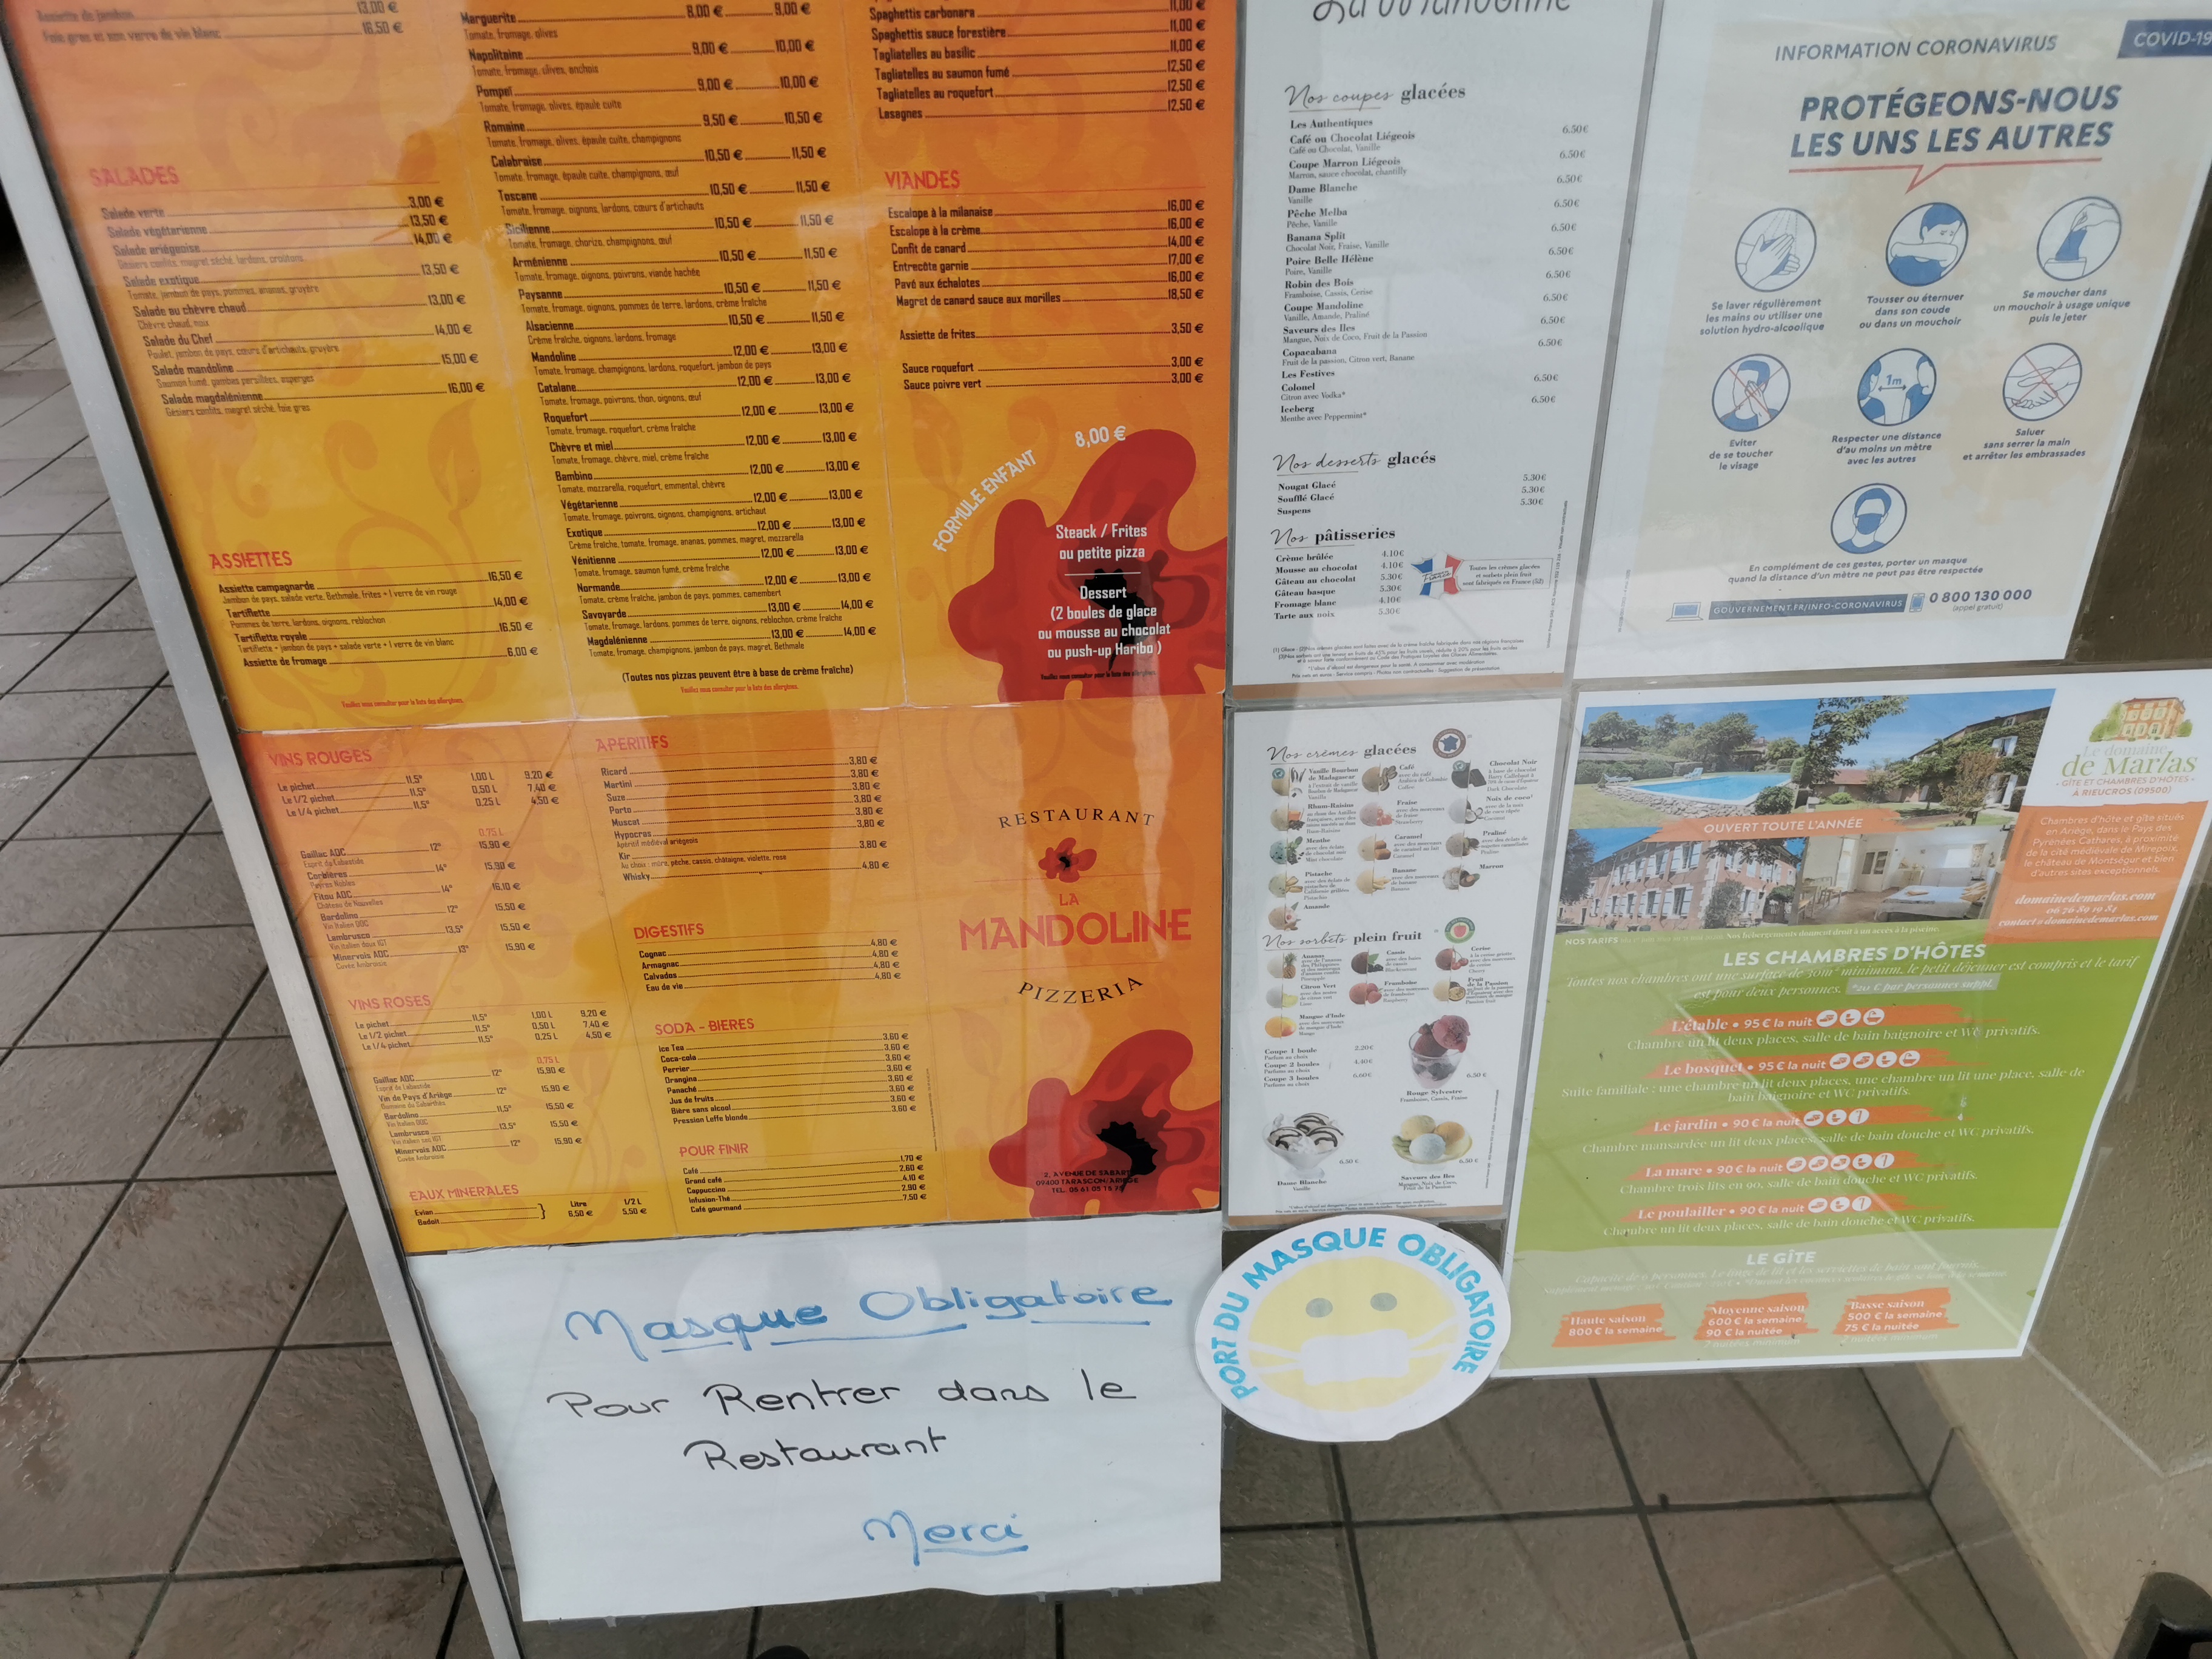 Assiette de jambon 13,00 €
Foie gras et son verre de vin blanc 16,50 €
SALADES
Salade verte 3,00 €
Salade végétarienne 13,50 €
Salade ariégeoise 14,00 €
Gésiers confits, magret séché, lardons, croûtons
Salade exotique 13,50 €
Tomate, jambon de pays, pommes, ananas, gruyère
Salade au chèvre chaud 13,00 €
Chèvre chaud, noix
Salade du Chef 14,00 €
Poulet, jambon de pays, cœurs d'artichauts, gruyère
Salade mandoline 15,00 €
Saumon fumé, gambas persillées, asperges
Salade magdalénienne 16,00 €
Gésiers confits, magret séché, foie gras
ASSIETTES
Assiette campagnarde 16,50 €
Jambon de pays, salade verte, Bethmale, frites + 1 verre de vin rouge
Tartiflette 14,00 €
Pommes de terre, lardons, oignons, reblochon
Tartiflette royale 16,50 €
Tartiflette + jambon de pays + salade verte + 1 verre de vin blanc
Assiette de fromage 6,00 €
Veuillez nous consulter pour la liste des allergènes.
Marguerite 8,00 € 9,00 €
Tomate, fromage, olives
Napolitaine 9,00 € 10,00 €
Tomate, fromage, olives, anchois
Pompeï 9,00 € 10,00 €
Tomate, fromage, olives, épaule cuite
Romaine 9,50 € 10,50 €
Tomate, fromage, olives, épaule cuite, champignons
Calabraise 10,50 € 11,50 €
Tomate, fromage, épaule cuite, champignons, œuf
Toscane 10,50 € 11,50 €
Tomate, fromage, oignons, lardons, cœurs d'artichauts
Sicilienne 10,50 € 11,50 €
Tomate, fromage, chorizo, champignons, œuf
Arménienne 10,50 € 11,50 €
Tomate, fromage, oignons, poivrons, viande hachée
Paysanne 10,50 € 11,50 €
Tomate, fromage, oignons, pommes de terre, lardons, crème fraîche
Alsacienne 10,50 € 11,50 €
Crème fraîche, oignons, lardons, fromage
Mandoline 12,00 € 13,00 €
Tomate, fromage, champignons, lardons, roquefort, jambon de pays
Catalane 12,00 € 13,00 €
Tomate, fromage, poivrons, thon, oignons, œuf
Roquefort 12,00 € 13,00 €
Tomate, fromage, roquefort, crème fraîche
Chèvre et miel 12,00 € 13,00 €
Tomate, fromage, chèvre, miel, crème fraîche
Bambino 12,00 € 13,00 €
Tomate, mozzarella, roquefort, emmental, chèvre
Végétarienne 12,00 € 13,00 €
Tomate, fromage, poivrons, oignons, champignons, artichaut
Exotique 12,00 € 13,00 €
Crème fraîche, tomate, fromage, ananas, pommes, magret, mozzarella
Vénitienne 12,00 € 13,00 €
Tomate, fromage, saumon fumé, crème fraîche
Normande 12,00 € 13,00 €
Tomate, crème fraîche, jambon de pays, pommes, camembert
Savoyarde 13,00 € 14,00 €
Tomate, fromage, lardons, pommes de terre, oignons, reblochon, crème fraîche
Magdalénienne 13,00 € 14,00 €
Tomate, fromage, champignons, jambon de pays, magret, Bethmale
(Toutes nos pizzas peuvent être à base de crème fraîche)
Veuillez nous consulter pour la liste des allergènes.
Spaghettis carbonara 11,00 €
Spaghettis sauce forestière 11,00 €
Tagliatelles au basilic 11,00 €
Tagliatelles au saumon fumé 12,50 €
Tagliatelles au roquefort 12,50 €
Lasagnes 12,50 €
VIANDES
Escalope à la milanaise 16,00 €
Escalope à la crème 16,00 €
Confit de canard 14,00 €
Entrecôte garnie 17,00 €
Pavé aux échalotes 16,00 €
Magret de canard sauce aux morilles 18,50 €
Assiette de frites 3,50 €
Sauce roquefort 3,00 €
Sauce poivre vert 3,00 €
FORMULE ENFANT 8,00 €
Steack / Frites
ou petite pizza
Dessert
(2 boules de glace
ou mousse au chocolat
ou push-up Haribo )
Veuillez nous consulter pour la liste des allergènes.
VINS ROUGES
Le pichet 11,5° 1,00 L 9,20 €
Le 1/2 pichet 11,5° 0,50 L 7,40 €
Le 1/4 pichet 11,5° 0,25 L 4,50 €
0,75 L
Gaillac AOC 12° 15,90 €
Esprit de Labastide
Corbières 14° 15,90 €
Peyres Nobles
Fitou AOC 14° 16,10 €
Château de Nouvelles
Bardolino 12° 15,50 €
Vin italien DOC
Lambrusco 13,5° 15,50 €
Vin italien doux IGT
Minervois AOC 13° 15,90 €
Cuvée Ambroisie
VINS ROSES
Le pichet 11,5° 1,00 L 9,20 €
Le 1/2 pichet 11,5° 0,50 L 7,40 €
Le 1/4 pichet 11,5° 0,25 L 4,50 €
0,75 L
Gaillac AOC 12° 15,90 €
Esprit de Labastide
Vin de Pays d'Ariège 12° 15,90 €
Bardolino 11,5° 15,50 €
Vin italien DOC
Lambrusco 13,5° 15,50 €
Minervois AOC 12° 15,90 €
Cuvée Ambroisie
EAUX MINERALES
Litre 1/2 L
Evian
Badoit
6,50 € 5,50 €
APERITIFS
Ricard 3,80 €
Martini 3,80 €
Suze 3,80 €
Porto 3,80 €
Muscat 3,80 €
Hypocras 3,80 €
Apéritif médiéval ariégeois
Kir 3,80 €
Au choix : mûre, pêche, cassis, châtaigne, violette, rose
Whisky 4,80 €
DIGESTIFS
Cognac 4,80 €
Armagnac 4,80 €
Calvados 4,80 €
Eau de vie 4,80 €
SODA - BIERES
Ice Tea 3,60 €
Coca-cola 3,60 €
Perrier 3,60 €
Orangina 3,60 €
Panaché 3,60 €
Jus de fruits 3,60 €
Bière sans alcool 3,60 €
Pression Leffe blonde 3,60 €
POUR FINIR
Café 1,70 €
Grand café 2,60 €
Cappuccino 4,10 €
Infusion-Thé 2,90 €
Café gourmand 7,50 €
RESTAURANT
LA
MANDOLINE
PIZZERIA
2, AVENUE DE SABART
09400 TARASCON/ARIEGE
TEL. 05 61 05 15
La Mandoline
Nos coupes glacées
Les Authentiques
Café ou Chocolat Liégeois 6.50€
Café ou Chocolat, Vanille
Coupe Marron Liégeois 6.50€
Marron, sauce chocolat, chantilly
Dame Blanche 6.50€
Vanille
Pêche Melba 6.50€
Pêche, Vanille
Banana Split 6.50€
Chocolat Noir, Fraise, Vanille
Poire Belle Hélène 6.50€
Poire, Vanille
Robin des Bois 6.50€
Framboise, Cassis, Cerise
Coupe Mandoline 6.50€
Vanille, Amande, Praliné
Saveurs des Iles 6.50€
Mangue, Noix de Coco, Fruit de la Passion
Copacabana 6.50€
Fruit de la passion, Citron vert, Banane
Les Festives
Colonel 6.50€
Citron avec Vodka*
Iceberg 6.50€
Menthe avec Peppermint*
Nos desserts glacés
Nougat Glacé 5.30€
Soufflé Glacé 5.30€
Suspens 5.30€
Nos pâtisseries
Crème brûlée 4.10€
Mousse au chocolat 4.10€
Gâteau au chocolat 5.30€
Gâteau basque 5.30€
Fromage blanc 4.10€
Tarte aux noix 5.30€
Toutes les crèmes glacées
et sorbets plein fruit
sont fabriqués en France (52)
Nos crèmes glacées
Vanille Bourbon
de Madagascar
Café
Chocolat Noir
Rhum-Raisins
Fraise
Noix de coco
Menthe
Caramel
Praliné
Pistache
Banane
Marron
Amande
Nos sorbets plein fruit
Ananas
Cassis
Cerise
Citron Vert
Framboise
Fruit
de la Passion
Mangue d'Inde
Coupe 1 boule 2.20€
Parfum au choix
Coupe 2 boules 4.40€
Parfums au choix
Coupe 3 boules 6.60€
Parfums au choix
Rouge Sylvestre 6.50 €
Framboise, Cassis, Fraise
Dame Blanche 6.50 €
Vanille
Saveurs des Iles 6.50 €
Mangue, Noix de Coco,
Fruit de la Passion
INFORMATION CORONAVIRUS
COVID-19
PROTÉGEONS-NOUS
LES UNS LES AUTRES
Se laver régulièrement
les mains ou utiliser une
solution hydro-alcoolique
Tousser ou éternuer
dans son coude
ou dans un mouchoir
Se moucher dans
un mouchoir à usage unique
puis le jeter
Eviter
de se toucher
le visage
1m
Respecter une distance
d'au moins un mètre
avec les autres
Saluer
sans serrer la main
et arrêter les embrassades
En complément de ces gestes, porter un masque
quand la distance d'un mètre ne peut pas être respectée
GOUVERNEMENT.FR/INFO-CORONAVIRUS
0 800 130 000
(appel gratuit)
Le domaine
de Marlas
- GÎTE ET CHAMBRES D'HÔTES -
À RIEUCROS (09500)
OUVERT TOUTE L'ANNÉE
Chambres d'hôte et gîte situés
en Ariège, dans le Pays des
Pyrénées Cathares, à proximité
de la cité médiévale de Mirepoix,
le château de Montségur et bien
d'autres sites exceptionnels.
domainedemarlas.com
06 76 89 19 84
contact@domainedemarlas.com
NOS TARIFS
LES CHAMBRES D'HÔTES
Toutes nos chambres ont une surface de 30m² minimum, le petit déjeuner est compris et le tarif
est pour deux personnes. *20 € par personnes suppl.
L'étable • 95 € la nuit
Chambre un lit deux places, salle de bain baignoire et WC privatifs.
Le bosquet • 95 € la nuit
Suite familiale : une chambre un lit deux places, une chambre un lit une place, salle de
bain baignoire et WC privatifs.
Le jardin • 90 € la nuit
Chambre mansardée un lit deux places, salle de bain douche et WC privatifs.
La mare • 90 € la nuit
Chambre trois lits en 90, salle de bain douche et WC privatifs.
Le poulailler • 90 € la nuit
Chambre un lit deux places, salle de bain douche et WC privatifs.
LE GÎTE
Haute saison
800 € la semaine
Moyenne saison
600 € la semaine
90 € la nuitée
Basse saison
500 € la semaine
75 € la nuitée
Masque Obligatoire
Pour Rentrer dans le
Restaurant
Merci
PORT DU MASQUE OBLIGATOIRE